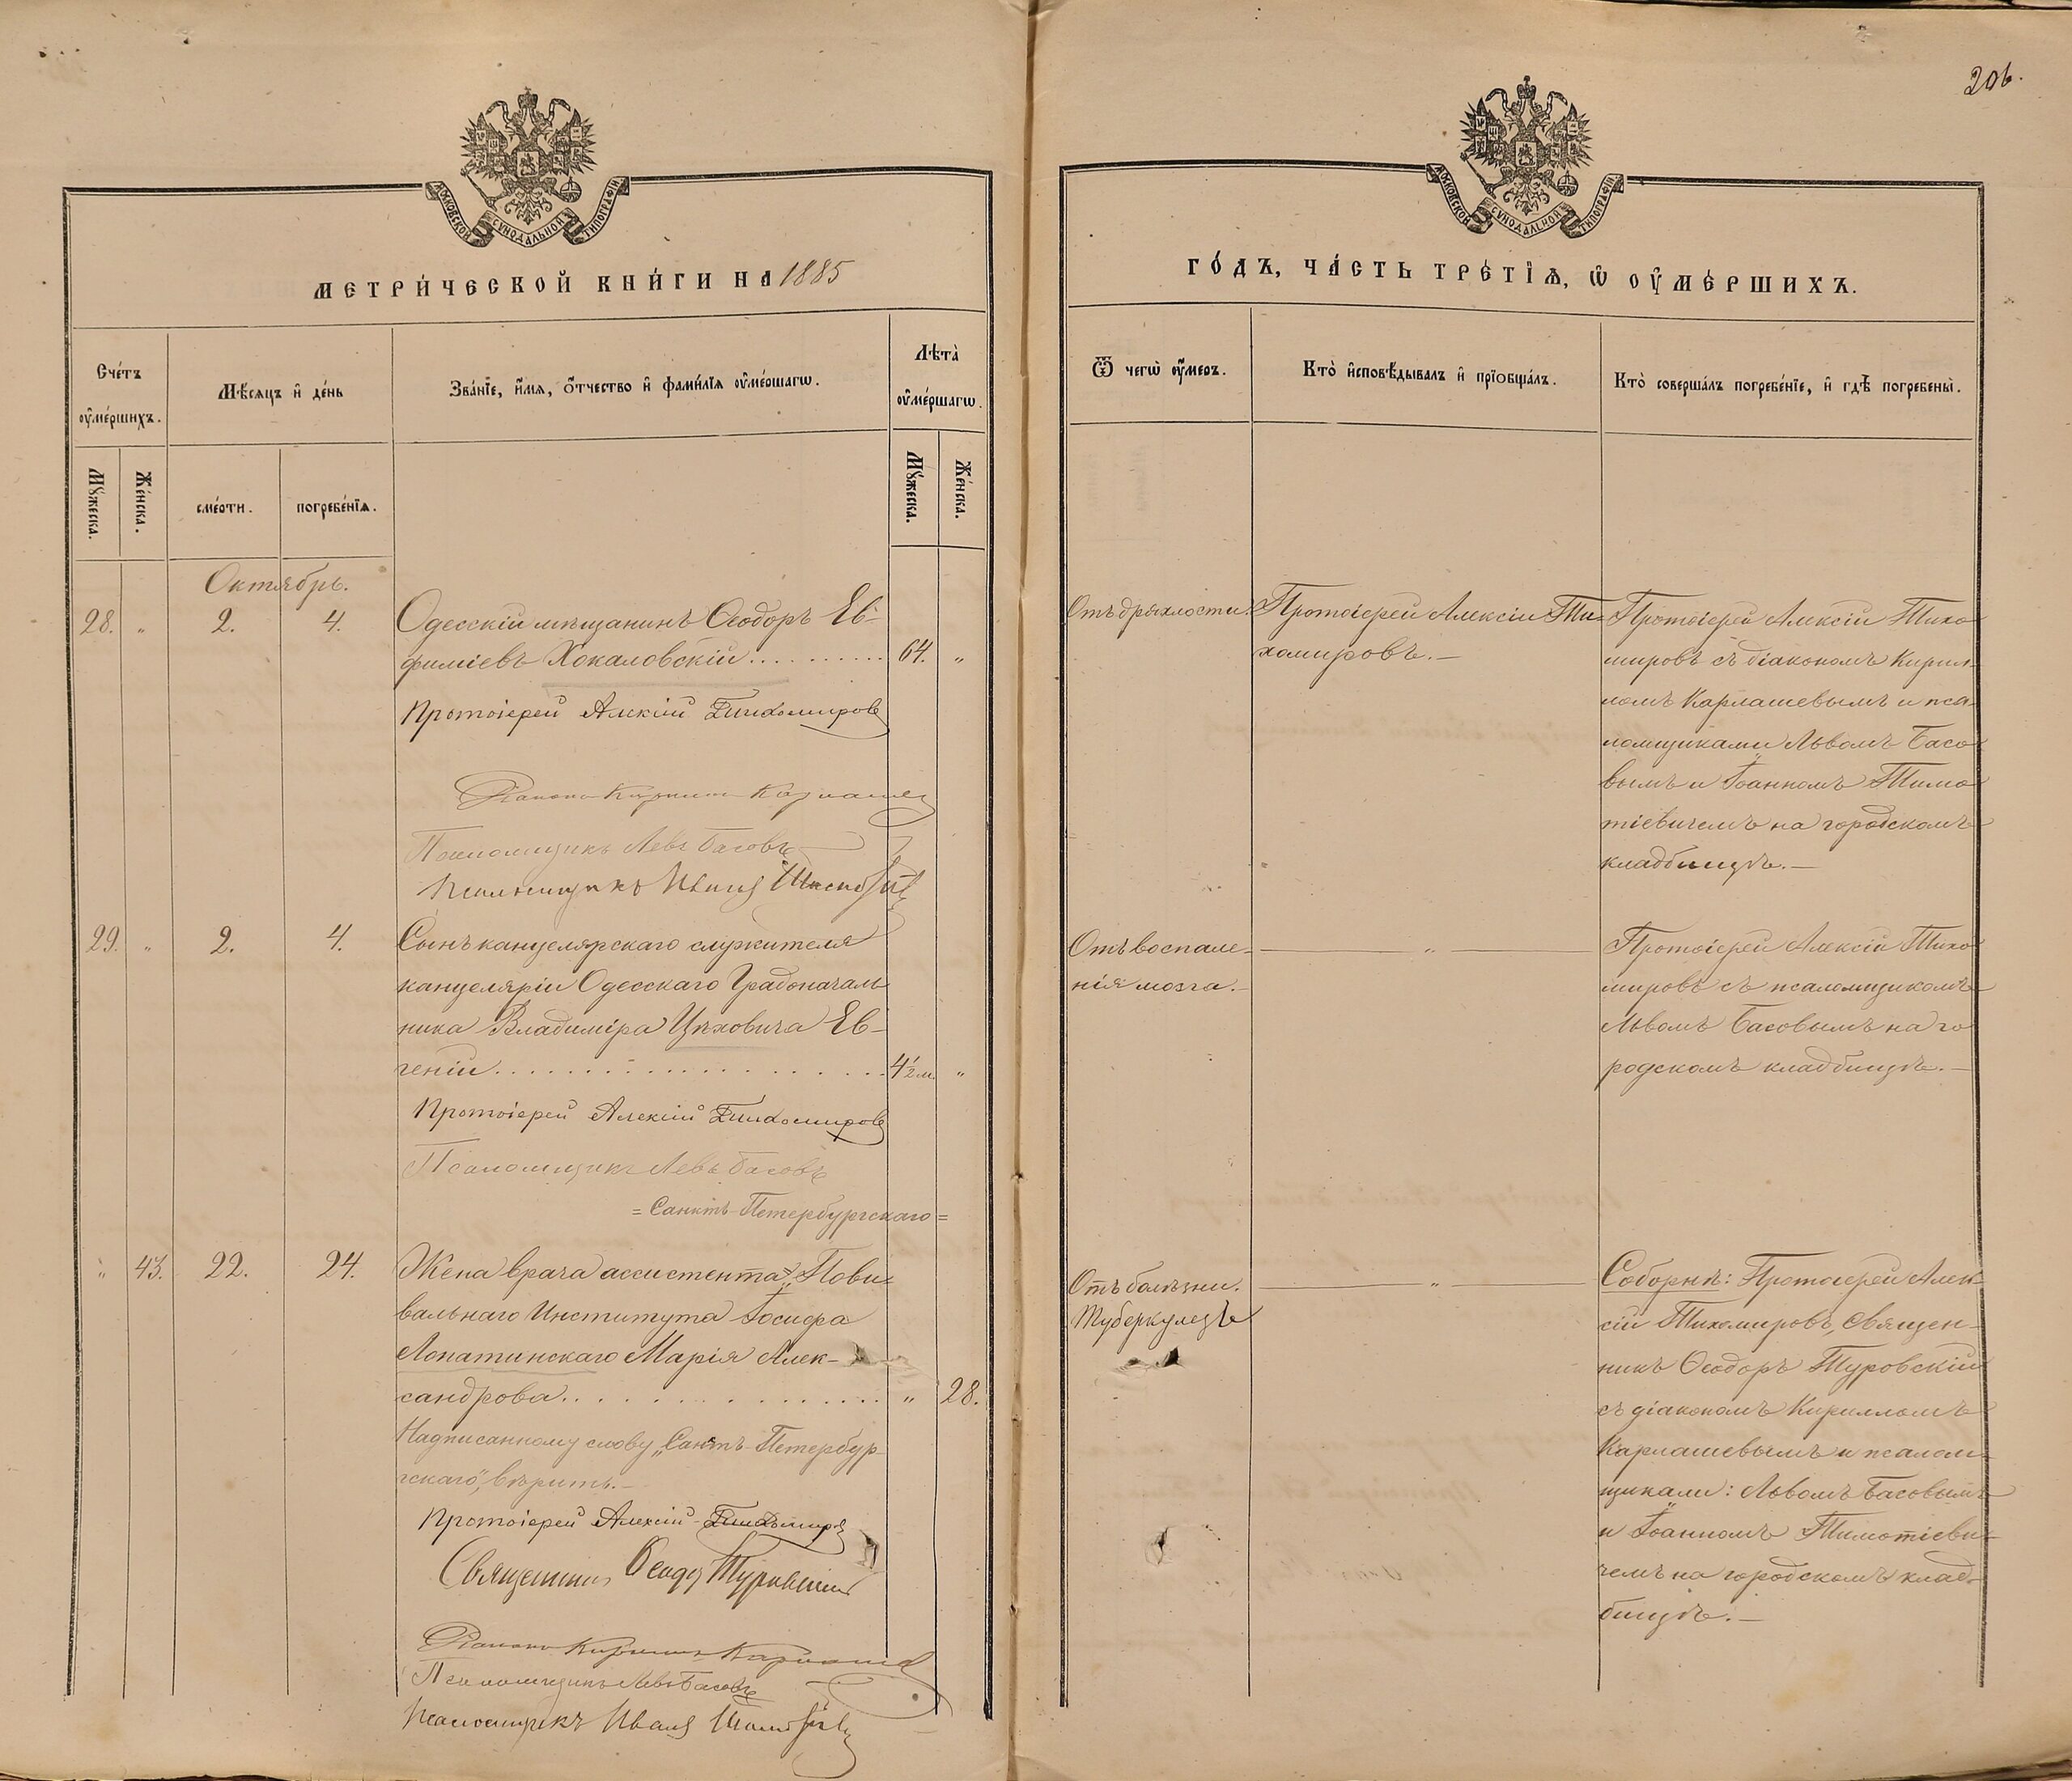 206.
МОСКОВСКОЙ СѴНОДАЛЬНОЙ ТИПОГРАФІИ
МОСКОВСКОЙ СѴНОДАЛЬНОЙ ТИПОГРАФІИ
МЕТРИ́ЧЕСКОЙ КНИ́ГИ НА 1885
ГО́ДЪ, ЧА́СТЬ ТРЕ́ТІѦ, Ѡ ОУ҆МЕ́РШИХЪ.
Сче́тъ оу҆ме́ршихъ.
Мѣ́сѧцъ и҆ де́нь
Зва́нїе, и҆́мѧ, ѻ҆́тчество и҆ фами́лїѧ оу҆ме́ршагѡ.
Лѣта̀ оу҆ме́ршагѡ.
Ѿ чегѡ̀ оу҆́меръ.
Кто̀ и҆сповѣ́дывалъ и҆ прїобща́лъ.
Кто̀ соверша́лъ погребе́нїе, и҆ гдѣ̀ погребены̀.
Мꙋ́жеска.
Же́нска.
сме́рти.
погребе́нїѧ.
Мꙋ́жеска.
Же́нска.
Октябрь.
28. „ 2. 4.
Одесскій мѣщанинъ Ѳеодоръ Ев-
фиміевъ Хокаловскій.......... 64. „
Протоіерей Алексій Тихомировъ
Діаконъ Кириллъ Карлашев
Псаломщикъ Левъ Басовъ
Псаломщикъ Иванъ
Отъ дряхлости.
Протоіерей Алексій Ти-
хомировъ.—
Протоіерей Алексій Тихо
мировъ съ діакономъ Кирил-
ломъ Карлашевымъ и пса-
ломщиками Львомъ Басо
вымъ и Іоанномъ Тимо
тіевичемъ на городскомъ
кладбищѣ.—
29. „ 2. 4.
Сынъ канцелярскаго служителя
канцеляріи Одесскаго Градоначаль
ника Владиміра Цѣховича Ев-
геній.................... 4½ м. „
Протоіерей Алексій Тихомировъ
Псаломщикъ Левъ Басовъ
Отъ воспале-
нія мозга.—
„
Протоіерей Алексій Тихо
мировъ съ псаломщикомъ
Львомъ Басовымъ на го
родскомъ кладбищѣ.—
=Санктъ-Петербургскаго=
„ 43. 22. 24.
Жена врача ассистента Пови-
вальнаго Института Іосифа
Лопатинскаго Марія Алек-
сандрова................ „ 28.
Надписанному слову „Санктъ-Петербур-
гскаго", вѣрить.—
Протоіерей Алексій Тихомировъ
Священникъ Ѳеодоръ Туровскій
Діаконъ Кириллъ Карлашев
Псаломщикъ Левъ Басовъ
Псаломщикъ Иванъ
Отъ болѣзни.
Туберкулезъ
„
Соборнѣ: Протоіерей Алек-
сій Тихомировъ, Священ-
никъ Ѳеодоръ Туровскій
съ діакономъ Кирилломъ
Карлашевымъ и псалом-
щиками: Львомъ Басовымъ
и Іоанномъ Тимотіеви-
чемъ на городскомъ клад-
бищѣ.—